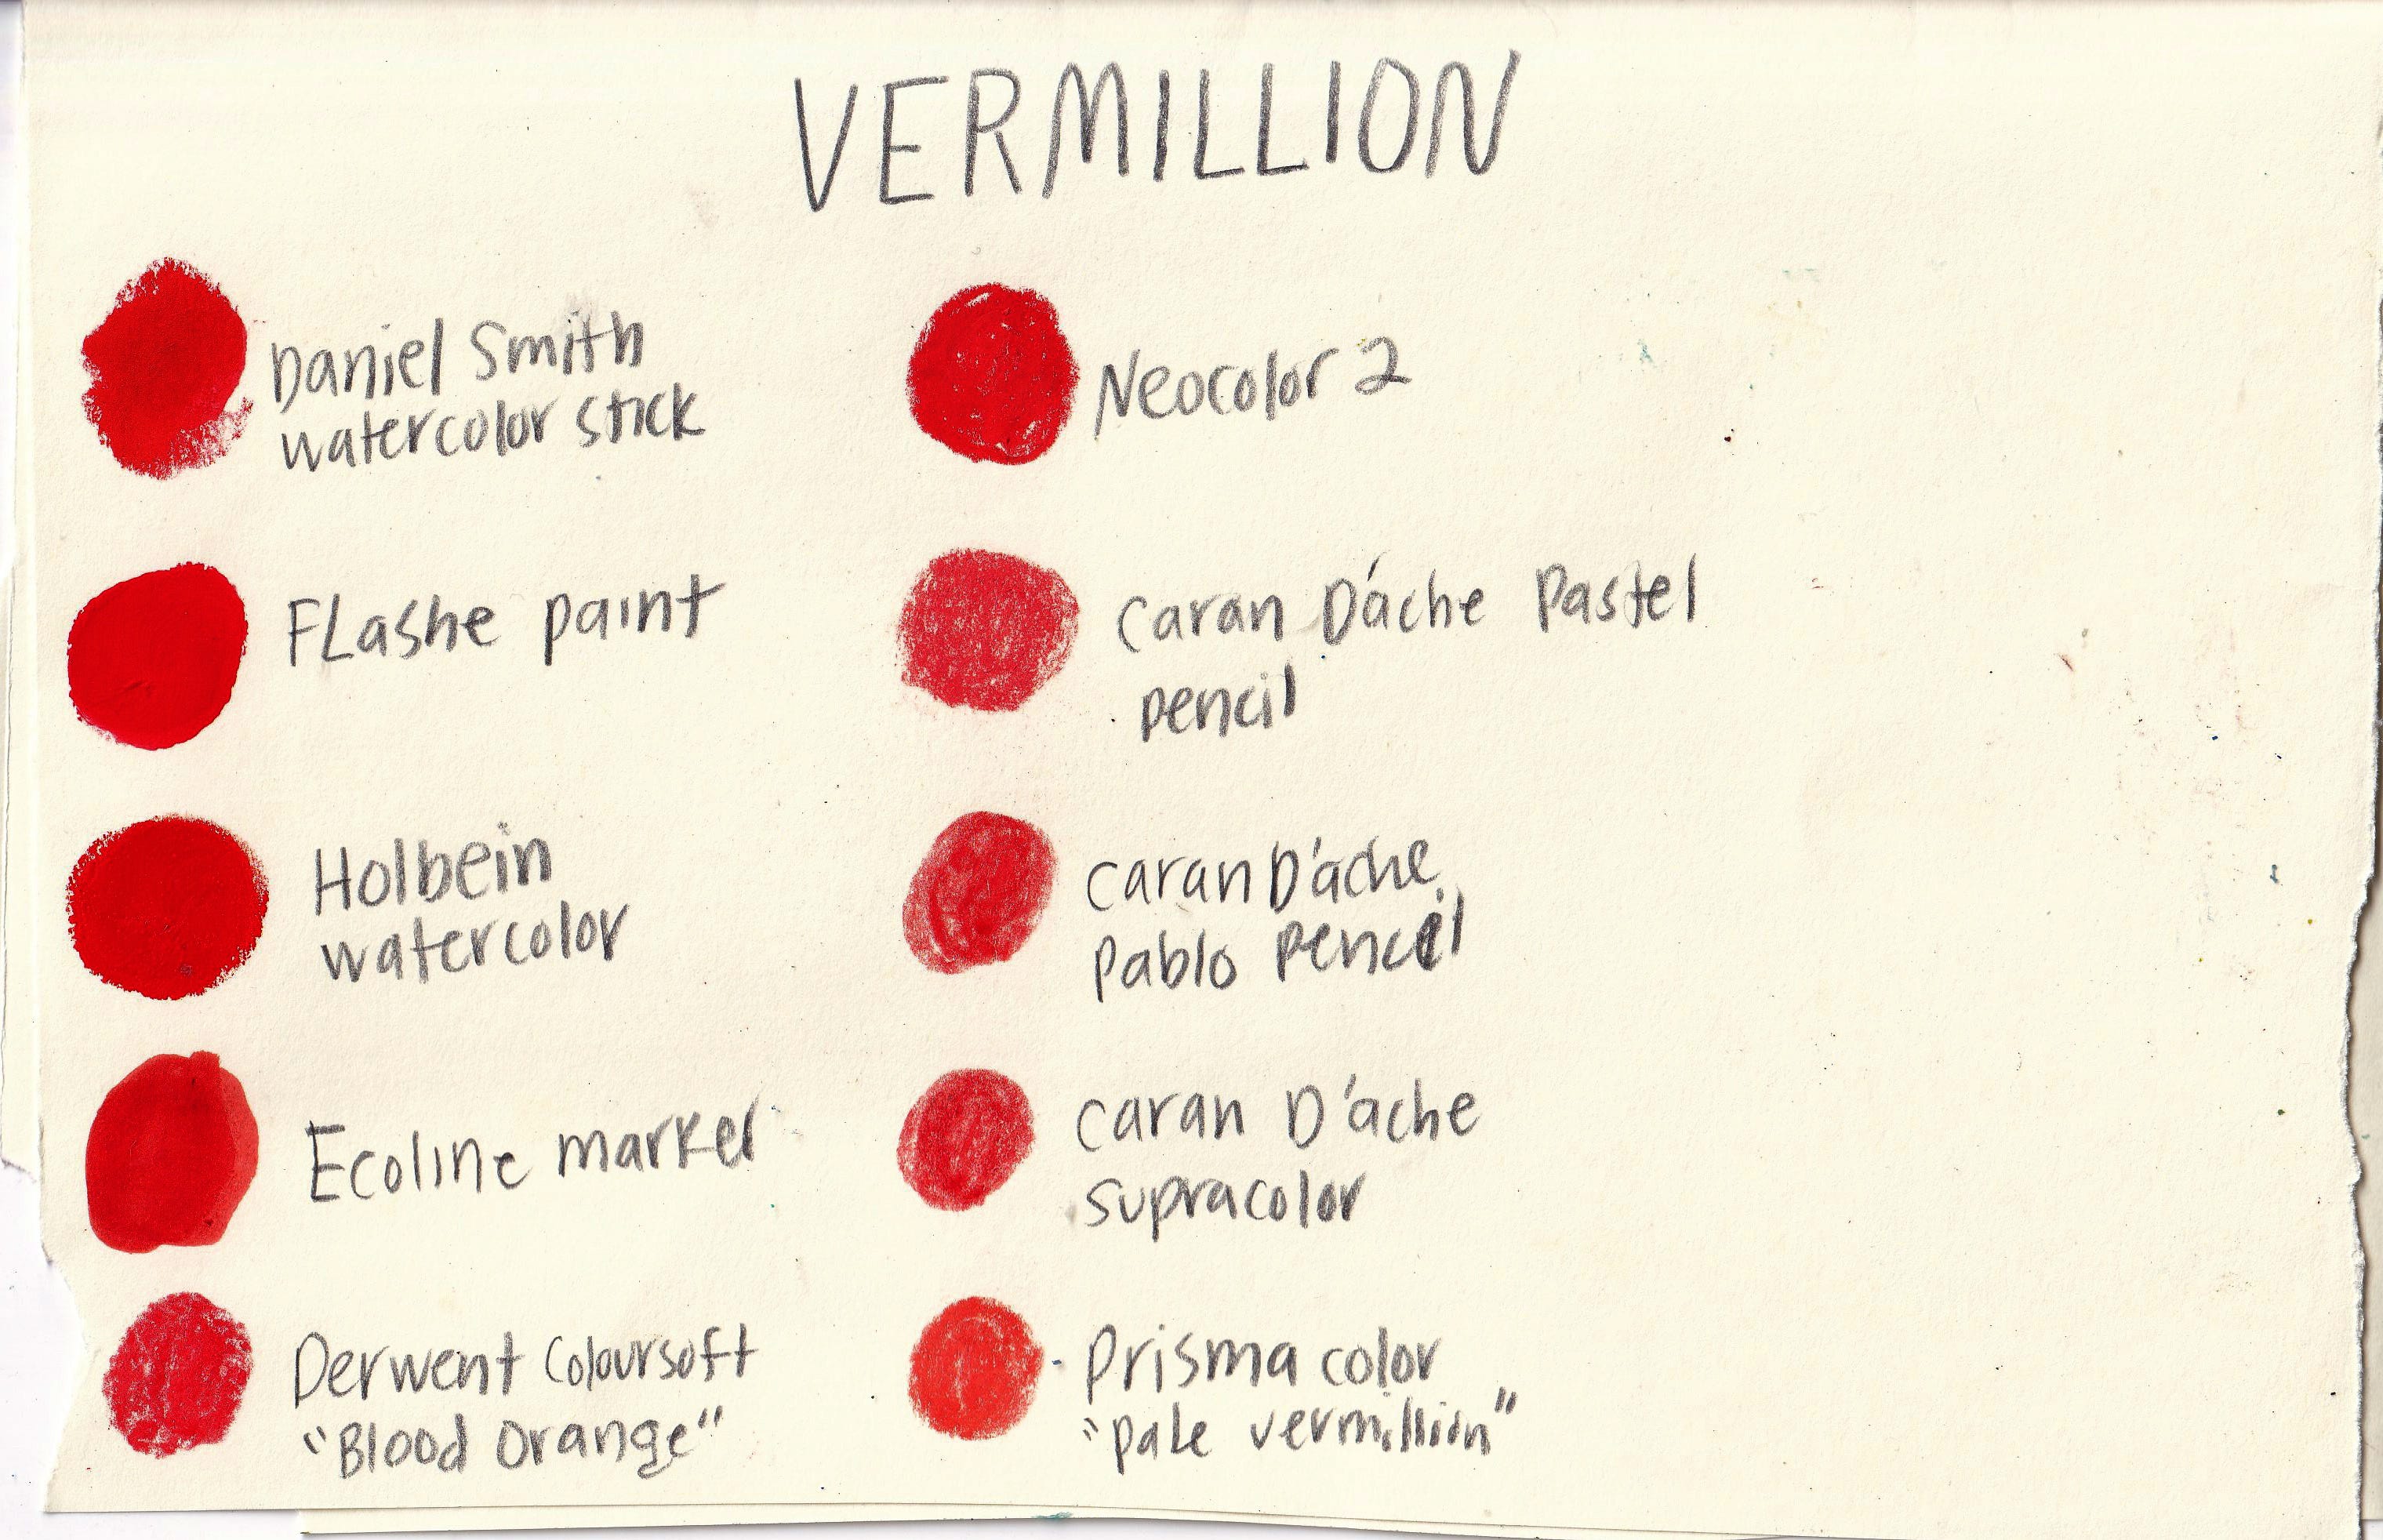 VERMILLION
Daniel Smith
watercolor stick
FLashe paint
Holbein
watercolor
Ecoline marker
Derwent Coloursoft
"Blood Orange"
Neocolor 2
Caran D'ache Pastel
pencil
Caran D'ache
Pablo Pencil
Caran D'ache
supracolor
Prisma color
"pale vermillion"